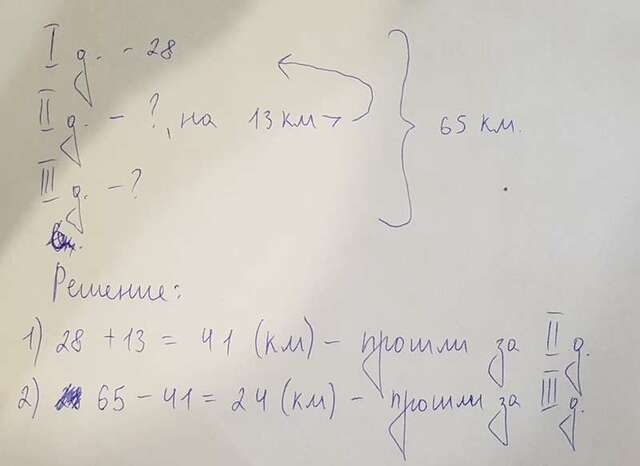 I д. - 28
II д. - ?, на 13 км > 65 км.
III д. - ?
Решение:
1) 28 + 13 = 41 (км) - прошли за II д.
2) 65 - 41 = 24 (км) - прошли за III д.